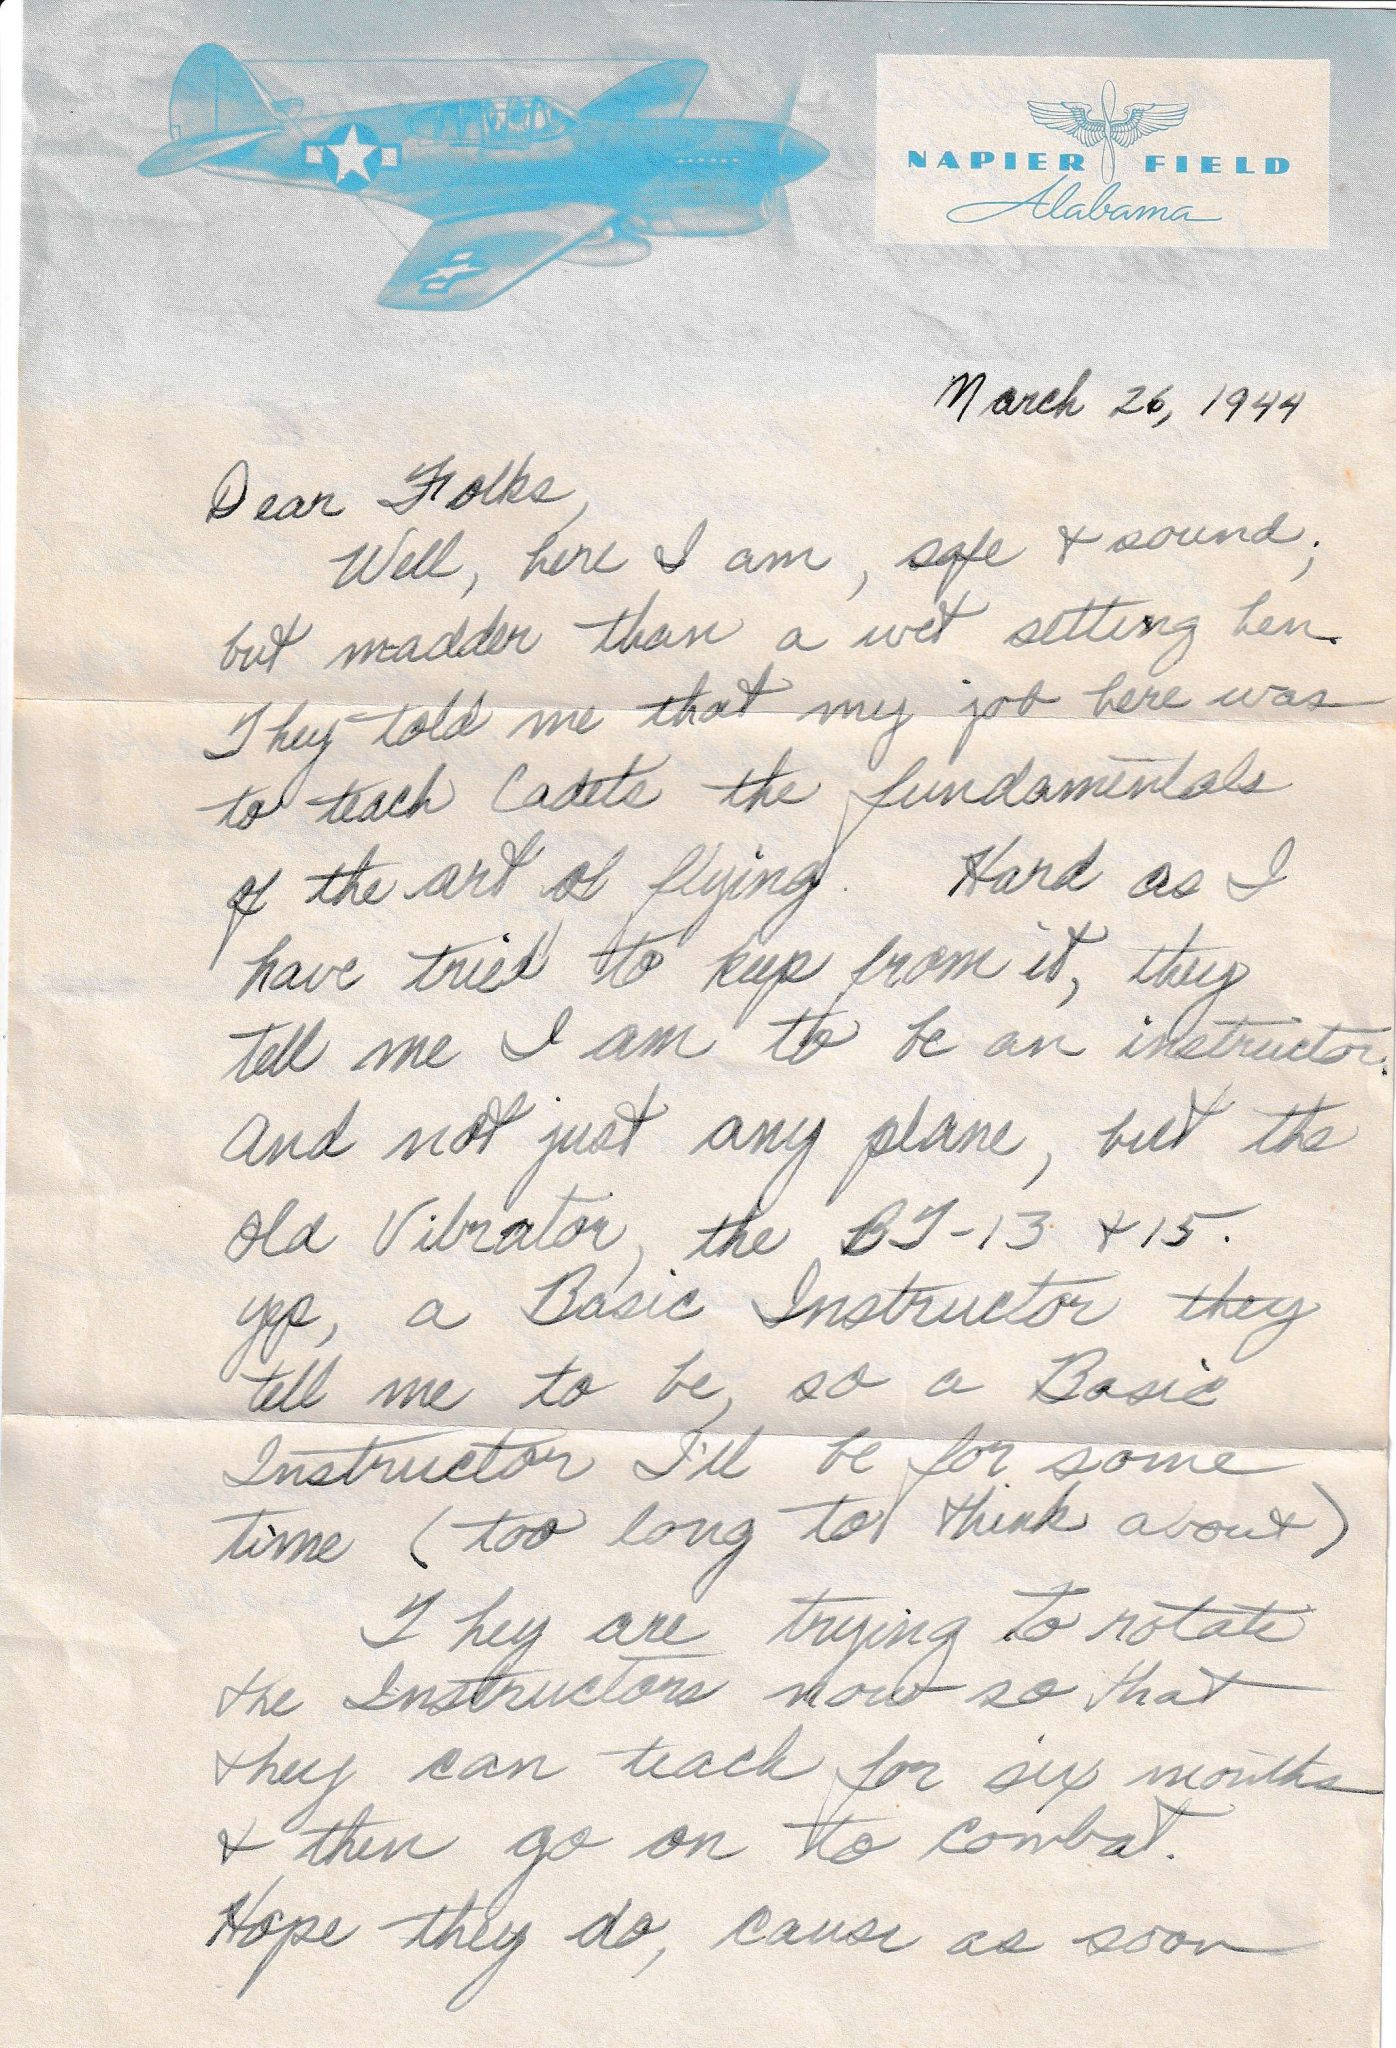 NAPIER FIELD
Alabama
March 26, 1944
Dear Folks,
Well, here I am, safe & sound;
but madder than a wet setting hen.
They told me that my job here was
to teach Cadets the fundamentals
of the art of flying. Hard as I
have tried to keep from it, they
tell me I am to be an instructor.
And not just any plane, but the
old Vibrator, the BT-13 & 15.
yep, a Basic Instructor they
tell me to be, so a Basic
Instructor I'll be for some
time (too long to think about)
They are trying to rotate
the Instructors now so that
they can teach for six months
& then go on to combat.
Hope they do, cause as soon